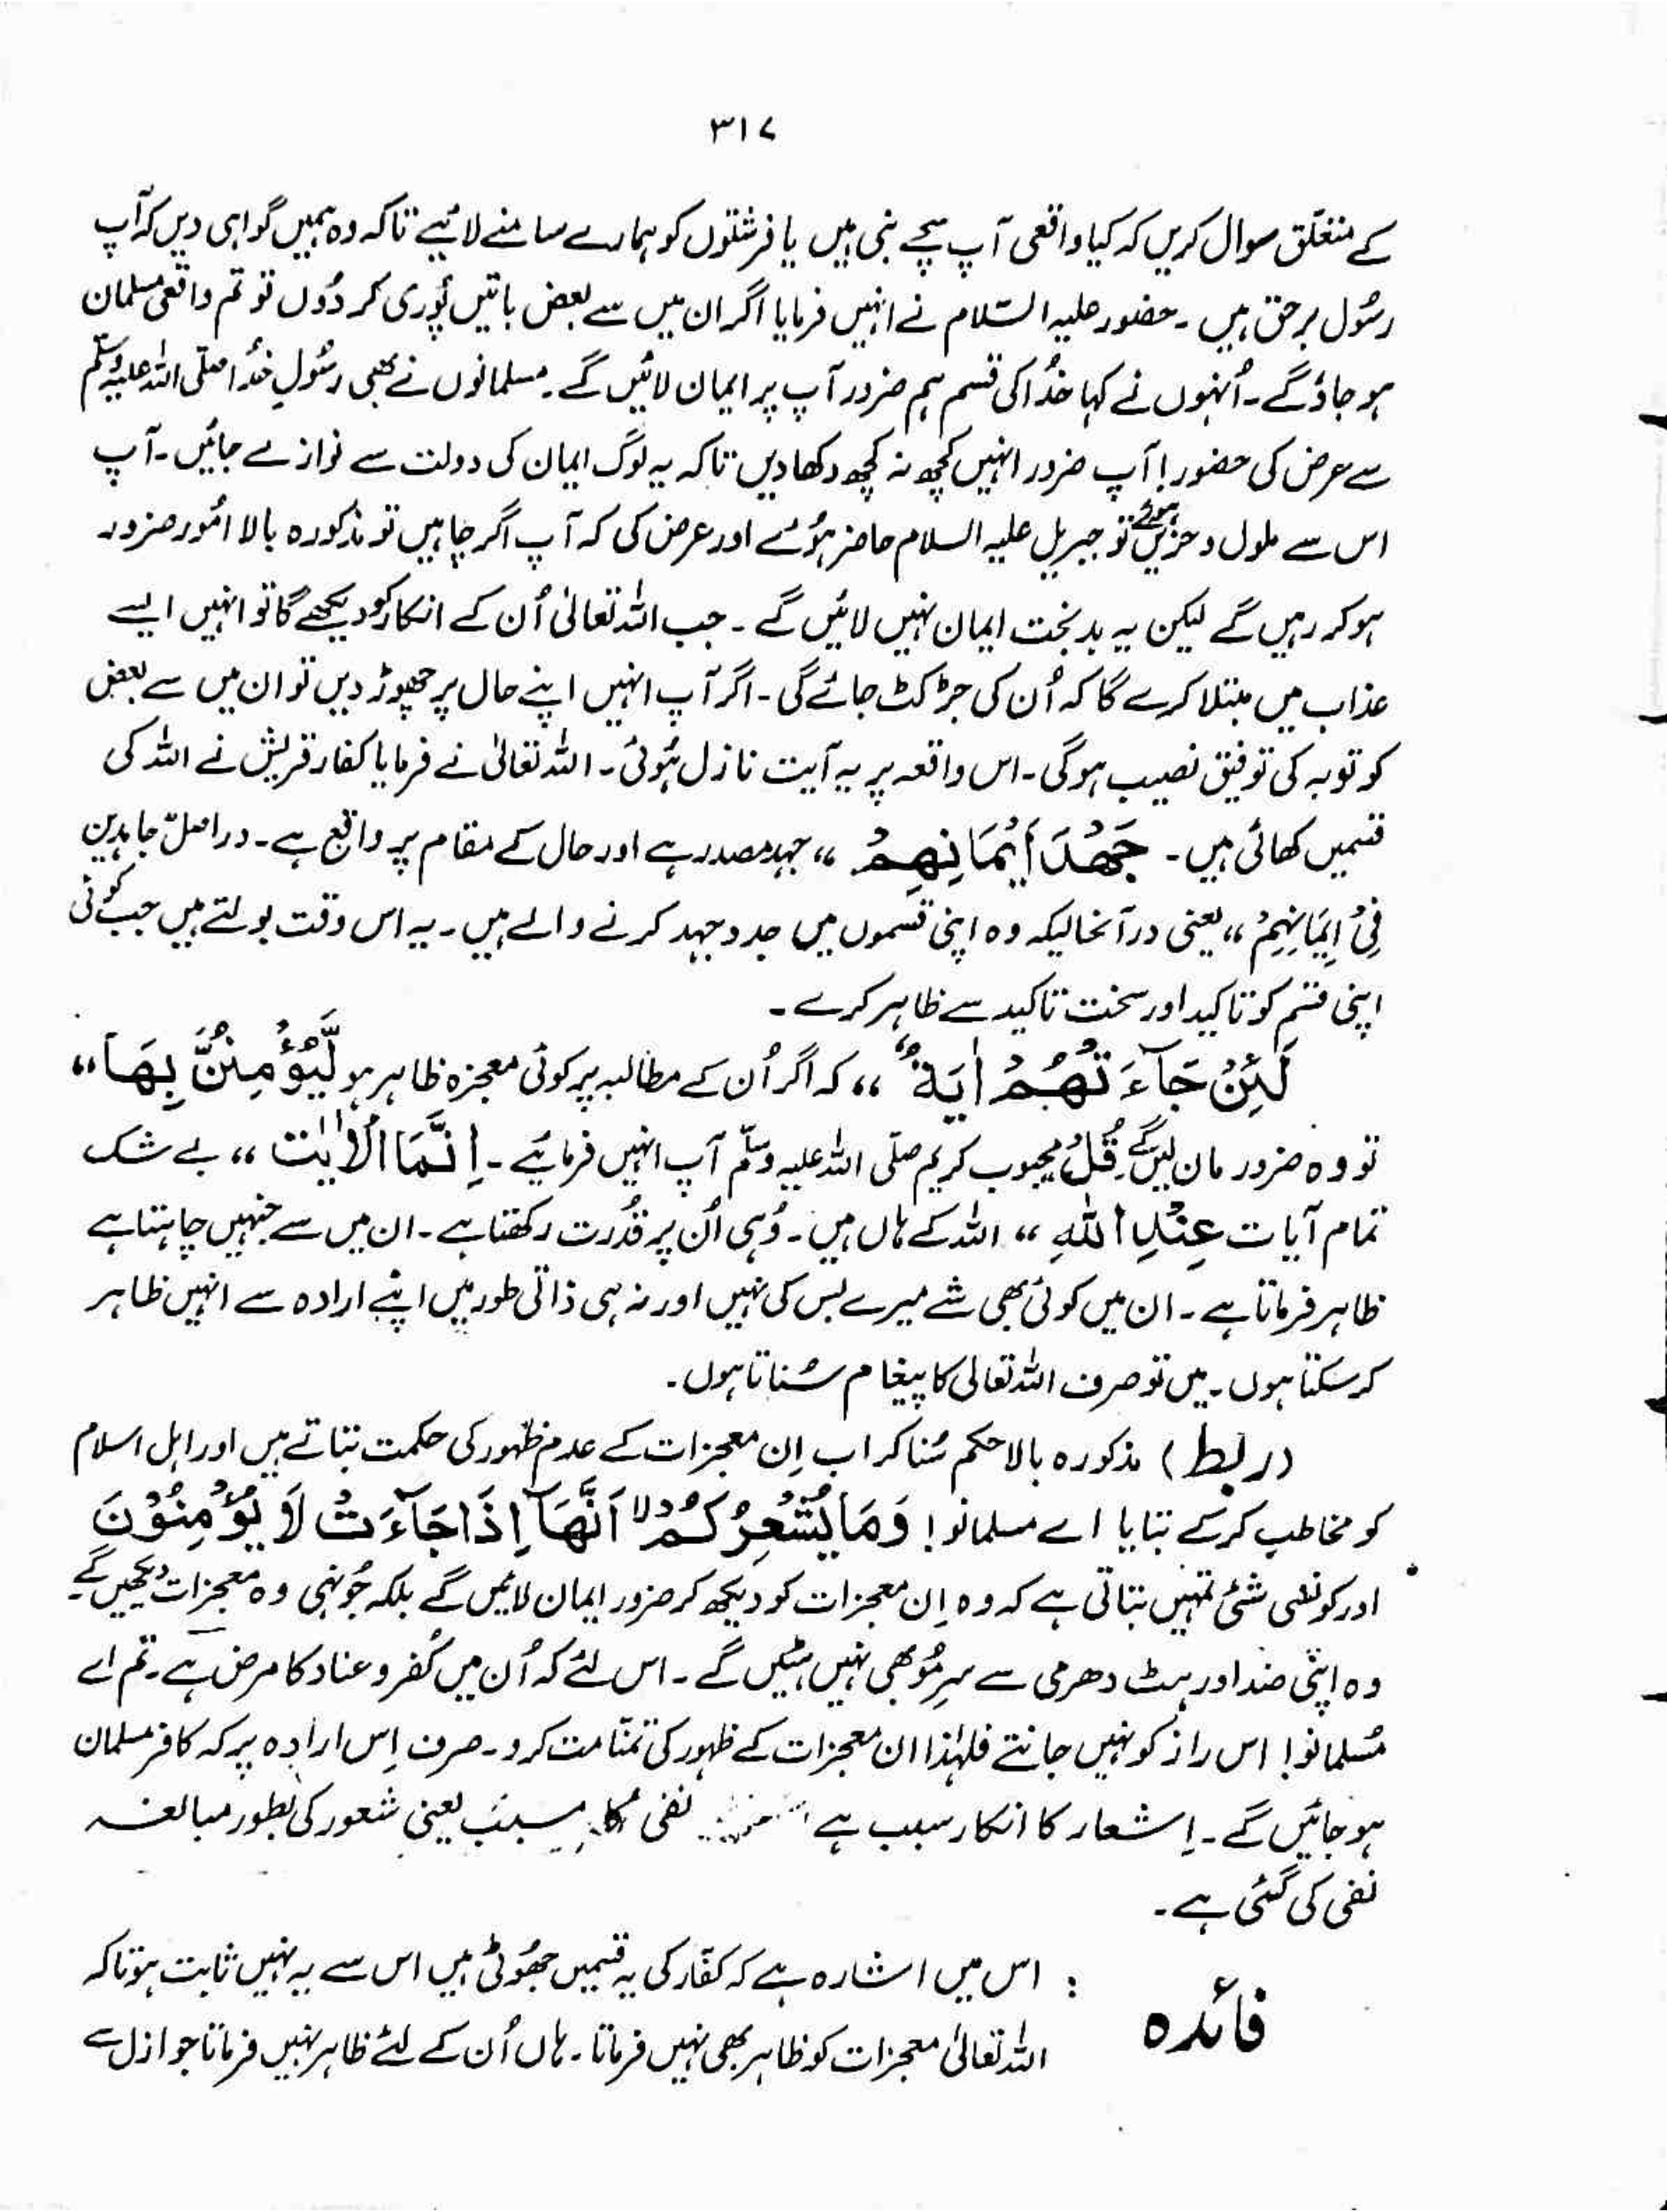 ۳۱۷
کے متعلّق سوال کریں کہ کیا واقعی آپ سچے نبی ہیں یا فرشتوں کو ہمارے سامنے لائیے تاکہ وہ ہمیں گواہی دیں کہ آپ
رسُول برحق ہیں ۔ حضور علیہ السّلام نے انہیں فرمایا اگر ان میں سے بعض باتیں پُوری کر دُوں تو تم واقعی مسلمان
ہو جاؤ گے ۔ اُنہوں نے کہا خُدا کی قسم ہم ضرور آپ پر ایمان لائیں گے ۔ مسلمانوں نے بھی رسُولِ خُدا صلّی اللہ علیہ وسلّم
سے عرض کی حضور! آپ ضرور انہیں کچھ نہ کچھ دکھا دیں تاکہ یہ لوگ ایمان کی دولت سے نوازے جائیں ۔ آپ
اس سے ملول و حزیں ہوئے تو جبریل علیہ السلام حاضر ہُوئے اور عرض کی کہ آپ اگر چاہیں تو مذکورہ بالا اُمور ضرور
ہو کر رہیں گے لیکن یہ بدبخت ایمان نہیں لائیں گے ۔ جب اللہ تعالیٰ اُن کے انکار کو دیکھے گا تو انہیں ایسے
عذاب میں مبتلا کرے گا کہ اُن کی جڑ کٹ جائے گی ۔ اگر آپ انہیں اپنے حال پر چھوڑ دیں تو ان میں سے بعض
کو توبہ کی توفیق نصیب ہوگی ۔ اس واقعہ پر یہ آیت نازل ہُوئی ۔ اللہ تعالیٰ نے فرمایا کفار قریش نے اللہ کی
قسمیں کھائی ہیں ۔ جَهْدَ اَيْمَانِهِمْ ،، جہد مصدر ہے اور حال کے مقام پر واقع ہے ۔ دراصل جاہدین
فِیْ اِیْمَانِہِمْ ،، یعنی درآنحالیکہ وہ اپنی قسموں میں جدوجہد کرنے والے ہیں ۔ یہ اس وقت بولتے ہیں جب کوئی
اپنی قسم کو تاکید اور سخت تاکید سے ظاہر کرے ۔
لَئِنْ جَآءَتْهُمْ اٰيَةٌ ،، کہ اگر اُن کے مطالبہ پر کوئی معجزہ ظاہر ہو لَّيُؤْمِنُنَّ بِهَا ،،
تو وہ ضرور مان لیں گے ۔ قُلْ محبوب کریم صلّی اللہ علیہ وسلّم آپ انہیں فرمائیے ۔ اِنَّمَا الْاٰيٰت ،، بے شک
تمام آیات عِنْدَ اللّٰهِ ،، اللہ کے ہاں ہیں ۔ وُہی اُن پر قُدرت رکھتا ہے ۔ ان میں سے جنہیں چاہتا ہے
ظاہر فرماتا ہے ۔ ان میں کوئی بھی شے میرے بس کی نہیں اور نہ ہی ذاتی طور میں اپنے ارادہ سے انہیں ظاہر
کر سکتا ہوں ۔ میں تو صرف اللہ تعالیٰ کا پیغام سُناتا ہوں ۔
( ربط ) مذکورہ بالا حکم سُنا کر اب اِن معجزات کے عدم ظہور کی حکمت بتاتے ہیں اور اہل اسلام
کو مخاطب کر کے بتایا اے مسلمانو! وَمَا يُشْعِرُكُمْ لا اَنَّهَآ اِذَا جَآءَتْ لَا يُؤْمِنُوْنَ
اور کونسی شئی تمہیں بتاتی ہے کہ وہ اِن معجزات کو دیکھ کر ضرور ایمان لائیں گے بلکہ جُونہی وہ معجزات دیکھیں گے
وہ اپنی ضد اور ہٹ دھرمی سے سرِمُو بھی نہیں ہٹیں گے ۔ اس لئے کہ اُن میں کُفر و عناد کا مرض ہے ۔ تم اے
مُسلمانو! اس راز کو نہیں جانتے فلہٰذا ان معجزات کے ظہور کی تمنّا مت کرو ۔ صرف اِس ارادہ پر کہ کافر مسلمان
ہو جائیں گے ۔ اِشعار کا انکار سبب ہے نفی کا مسبب یعنی شعور کی بطور مبالغہ
نفی کی گئی ہے ۔
فائدہ : اس میں اشارہ ہے کہ کفّار کی یہ قسمیں جھُوٹی ہیں اس سے یہ نہیں ثابت ہوتا کہ
اللہ تعالیٰ معجزات کو ظاہر بھی نہیں فرماتا ۔ ہاں اُن کے لئے ظاہر نہیں فرماتا جو ازل سے